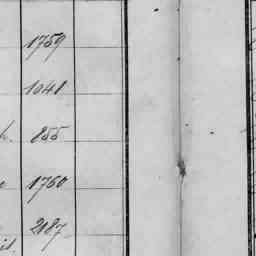 1759
1041
855
1760
2187